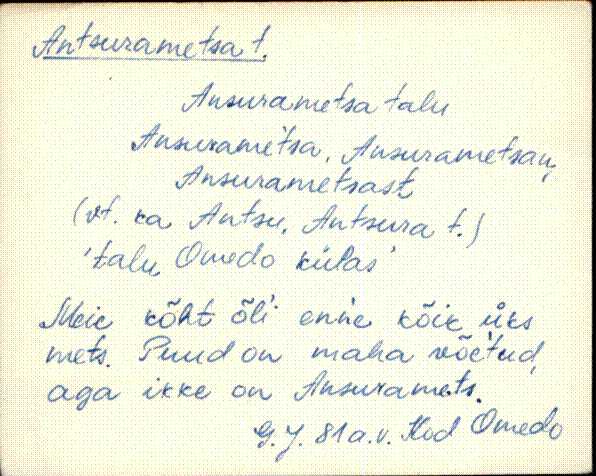 Antsurametsa t.
Ansurametsa talu
Ansurame'tsa, Ansurametsau,
Ansurametsast
(vt. ka Antsu, Antsura t.)
'talu Omedo külas'
Meie kõht õli enne kõik üks
mets. Puud on maha võetud,
aga ikke on Ansuramets.
G. J. 81 a. v. Kod Omedo